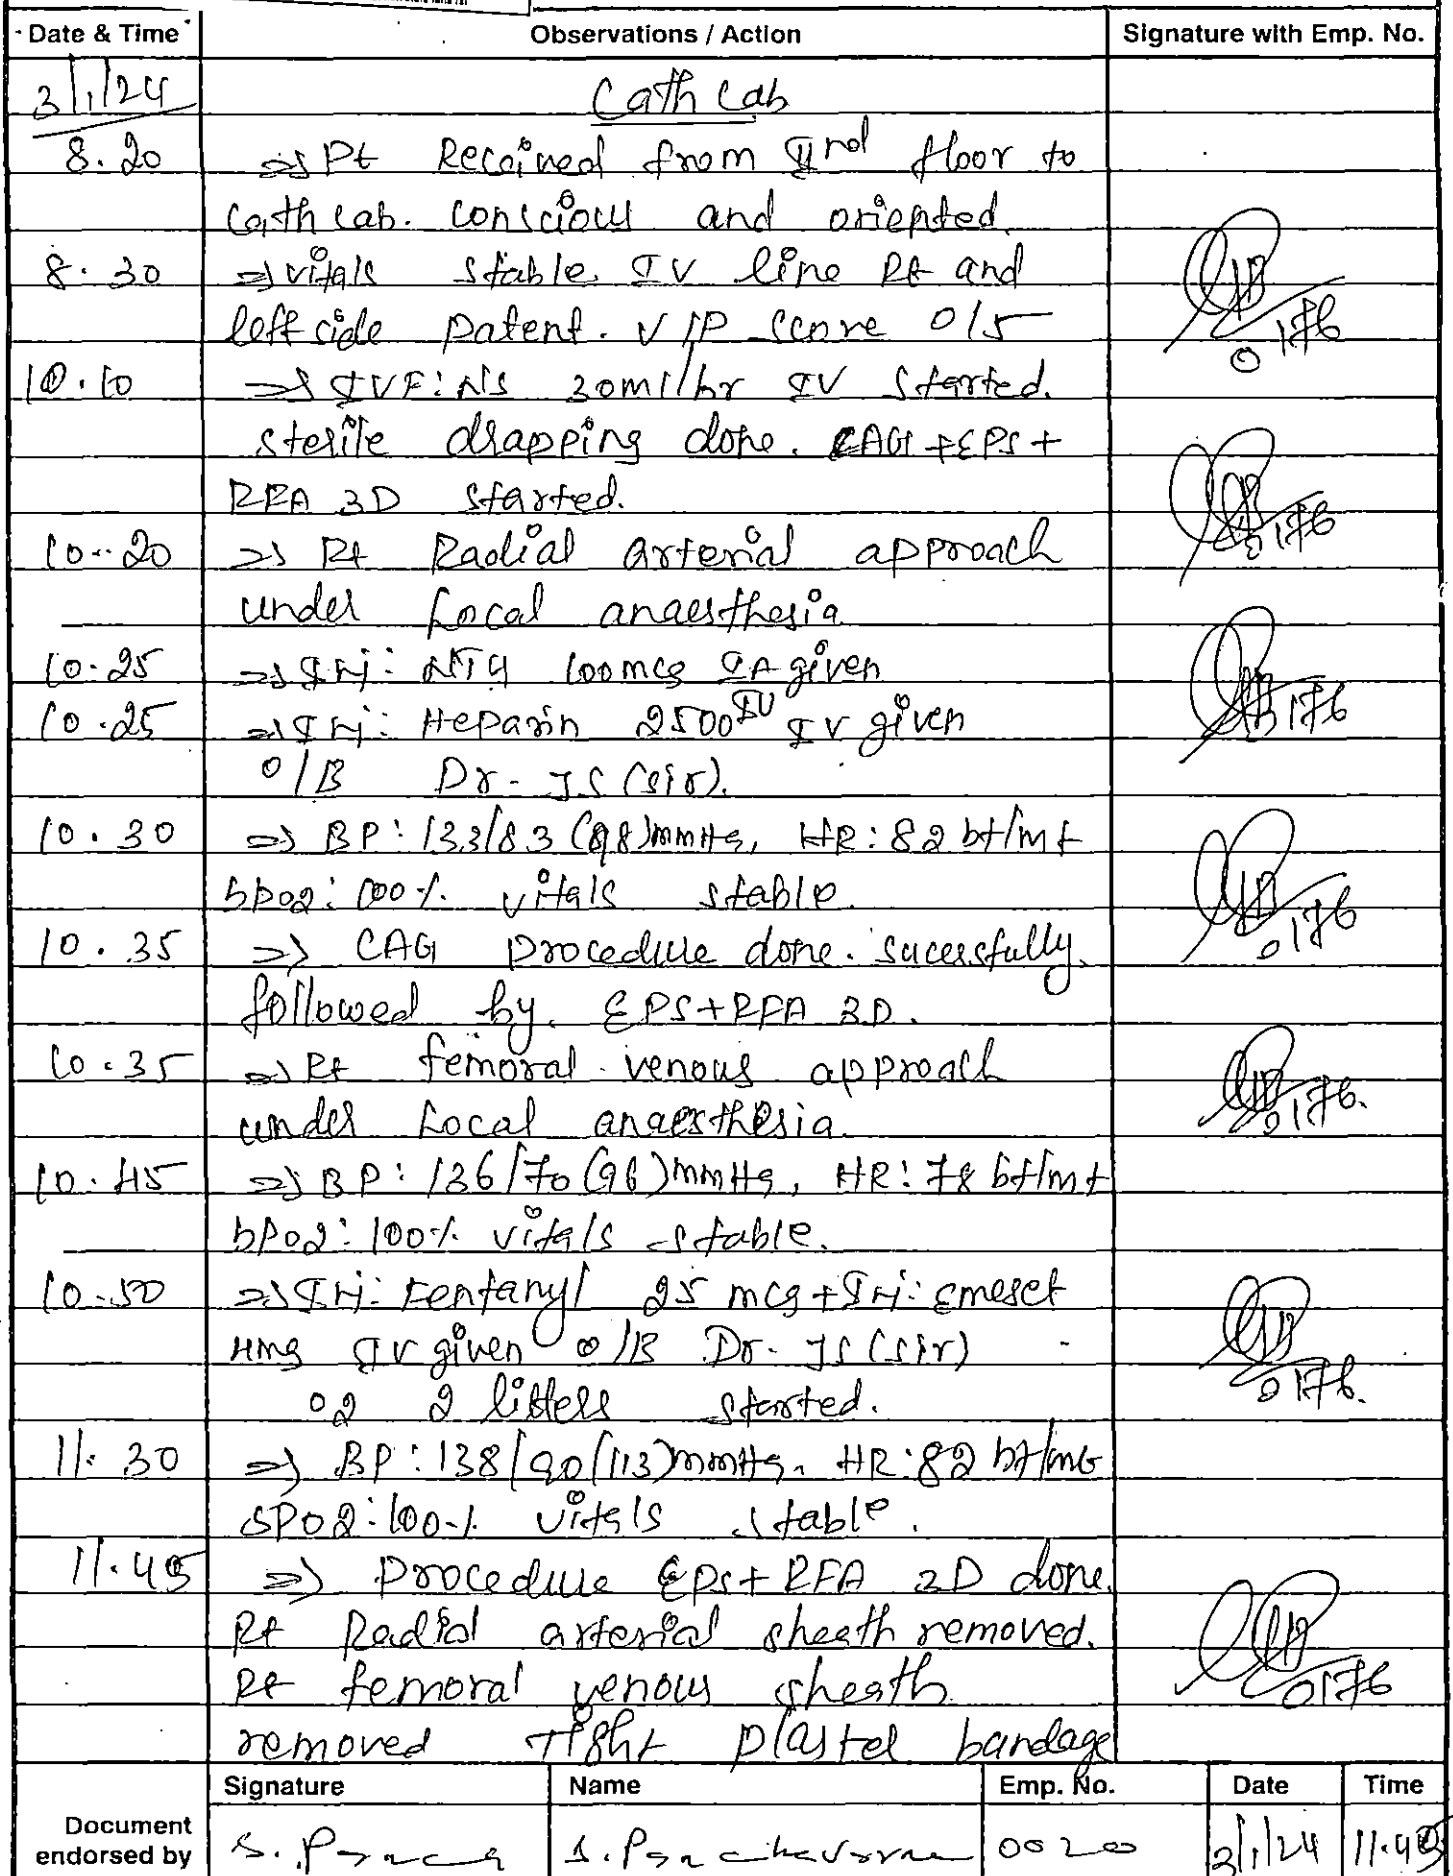 Date & Time Observations / Action Signature with Emp. No.
3/1/24 Cath Lab
8.20 => Pt Received from IInd floor to
Cath Lab. conscious and oriented.
8.30 => vitals stable. IV line Rt and
left side patent. VIP score 0/5
10.10 => IVF: NS 30ml/hr IV started.
sterile drapping done. CAG + EPS +
RFA 3D started.
10.20 => Rt Radial arterial approach
under Local anaesthesia
10.25 => Inj: NTG 100mcg IA given
10.25 => Inj: Heparin 2500 IU IV given
O/B Dr. JS (sir).
10.30 => BP: 133/83 (98)mmHg, HR: 82 bt/mt
spo2: 100% vitals stable.
10.35 => CAG procedure done. sucessfully.
followed by. EPS+RFA 3D.
10.35 => Rt femoral venous approach
under Local anaesthesia.
10.45 => BP: 136/70 (96)mmHg, HR: 78 bt/mt
spo2: 100% vitals stable.
10.50 => Inj: Fentanyl 25 mcg + Inj: emeset
4mg IV given O/B Dr. JS (sir)
O2 2 litters started.
11.30 => BP: 138/90 (113)mmHg, HR: 82 bt/mt
SPO2: 100% vitals stable.
11.45 => Procedure EPS + RFA 3D done.
Rt Radial arterial sheath removed.
Rt femoral venous sheath
removed Tight plaster bandage
0176
0176
0176
0176
0176.
0176.
0176
Signature Name Emp. No. Date Time
Document
endorsed by 0020 3/1/24 11.45